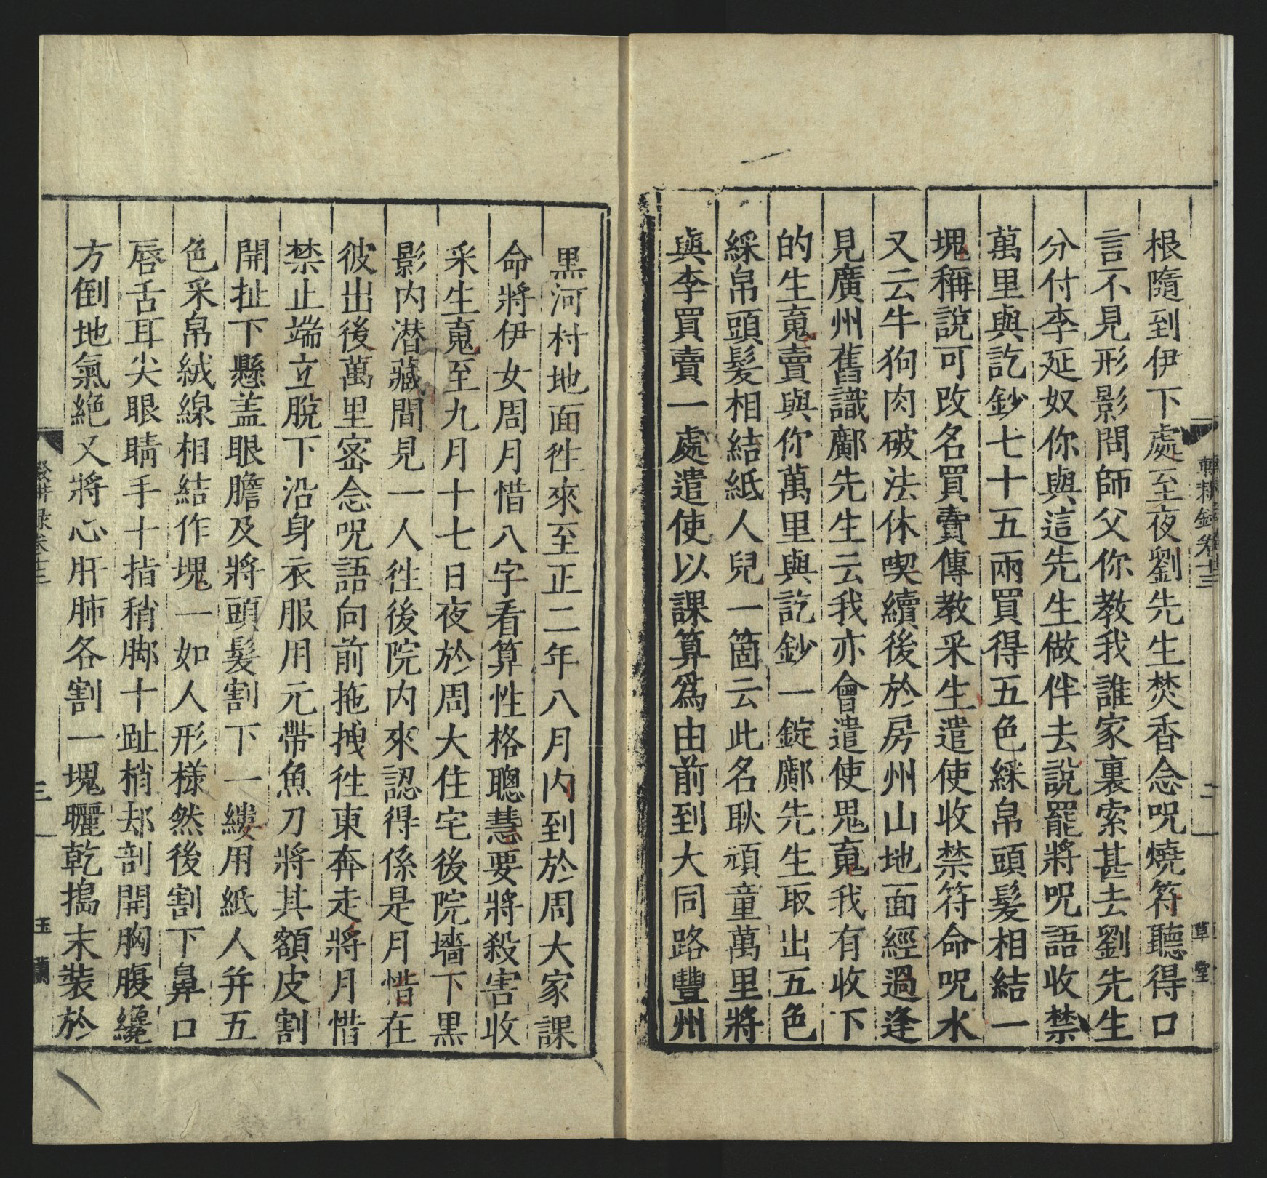 根隨到伊下處至夜劉先生焚香念呪燒符聽得口
言不見形影問師父你教我誰家裏索甚去劉先生
分付李延奴你與這先生做伴去說罷將呪語收禁
萬里與訖鈔七十五兩買得五色綵帛頭髮相結一
塊稱說可改名買賣傳教采生遣使收禁符命呪水
又云牛狗肉破法休喫續後於房州山地面經過逢
見廣州舊識鄺先生云我亦會遣使鬼䰟我有收下
的生䰟賣與你萬里與訖鈔一錠鄺先生取出五色
綵帛頭髮相結紙人兒一箇云此名耿頑童萬里將
與李買賣一處遣使以課算爲由前到大同路豐州
黑河村地面徃來至正二年八月內到於周大家課
命將伊女周月惜八字看算性格聰慧要將殺害收
采生䰟至九月十七日夜於周大住宅後院墻下黑
影內潜藏間見一人徃後院內來認得係是月惜在
彼出後萬里密念呪語向前拖拽徃東奔走將月惜
禁止端立脫下沿身衣服用元帶魚刀將其額皮割
開扯下懸盖眼膽及將頭髮割下一縷用紙人并五
色采帛絨線相結作塊一如人形樣然後割下鼻口
唇舌耳尖眼睛手十指稍脚十趾梢却剖開胸腹纔
方倒地氣絶又將心肝肺各割一塊曬乾搗末裝於
輟耕錄卷十三
二
草堂
三
玉蘭